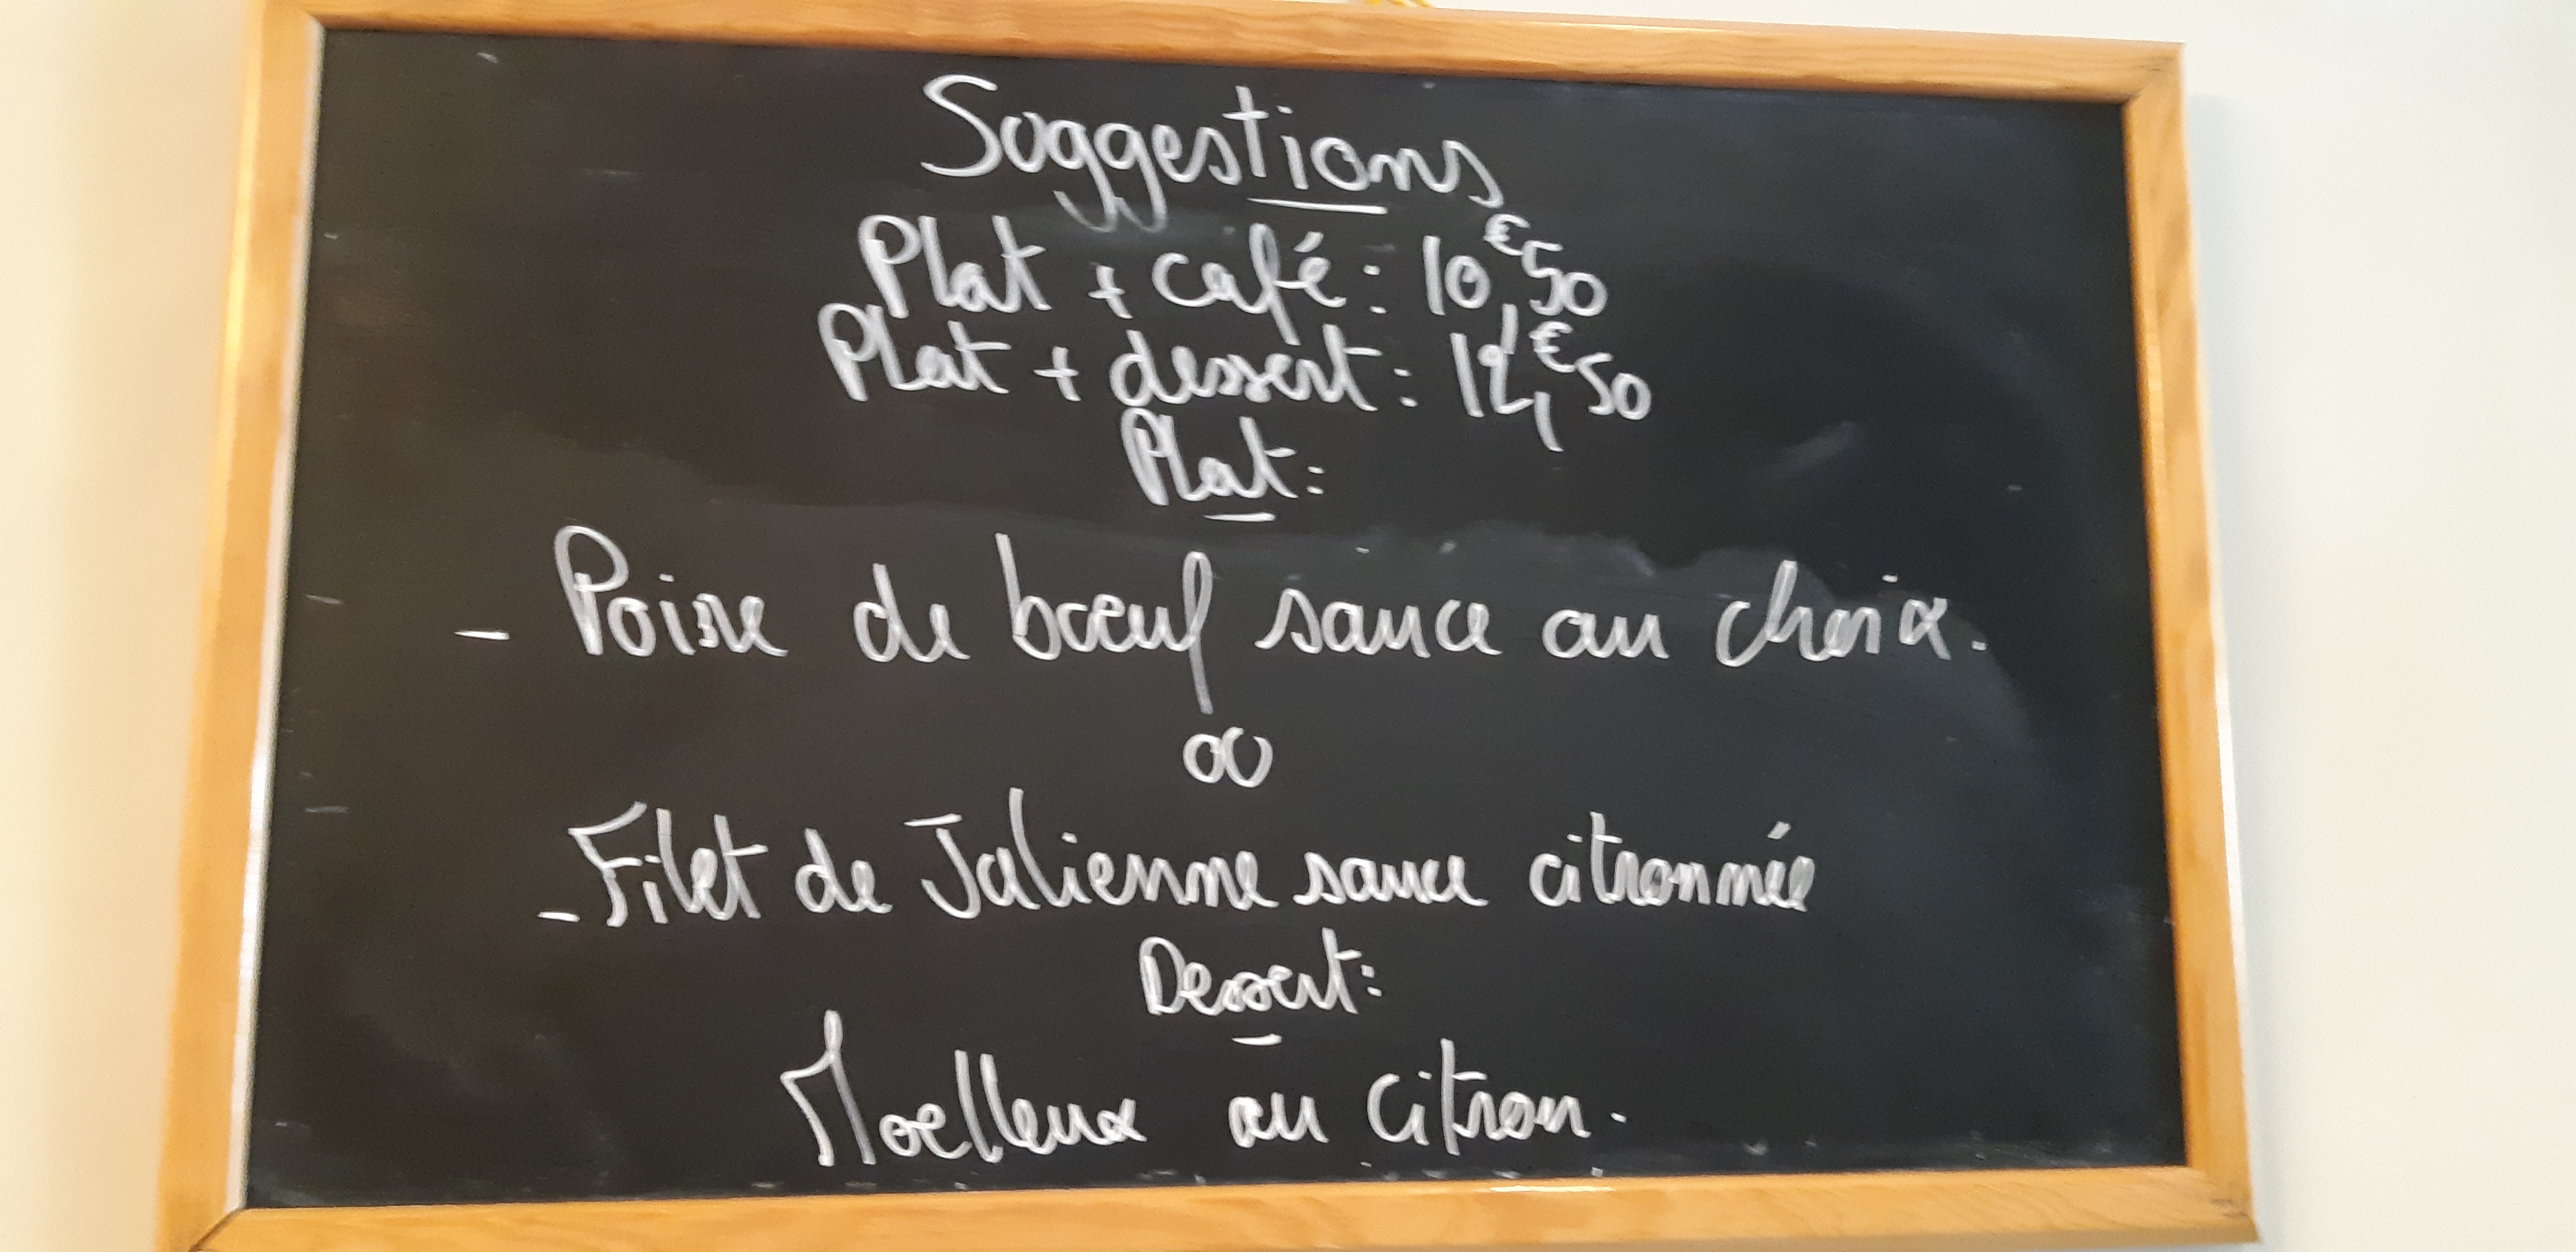 Suggestions
Plat + café : 10,€50
Plat + dessert : 12,€50
Plat :
- Poire de bœuf sauce au choix.
ou
- Filet de Julienne sauce citronnée
Dessert :
Moelleux au citron.